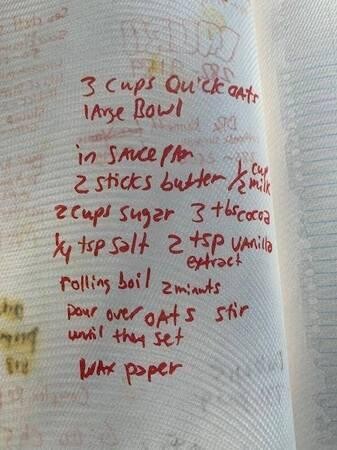 3 cups Quick oats
large Bowl
in saucepan
2 sticks butter 1/2 cup milk
2 cups sugar 3 tbs cocoa
1/4 tsp salt 2 tsp vanilla
extract
rolling boil 2 minuts
pour over oats stir
until they set
wax paper